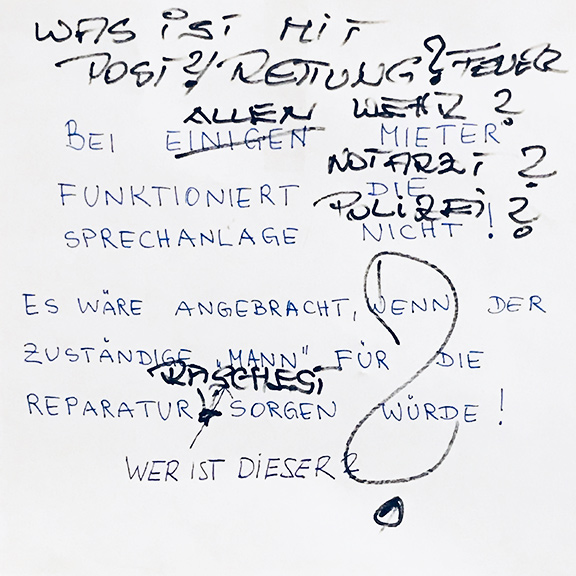 WAS IST MIT
POST?/RETTUNG? FEUER
ALLEN WEHR?
BEI EINIGEN MIETER
NOTARZT?
FUNKTIONIERT DIE
POLIZEI?
SPRECHANLAGE NICHT!
ES WÄRE ANGEBRACHT, WENN DER
ZUSTÄNDIGE "MANN" FÜR DIE
RASCHEST
REPARATUR SORGEN WÜRDE!
WER IST DIESER?
?